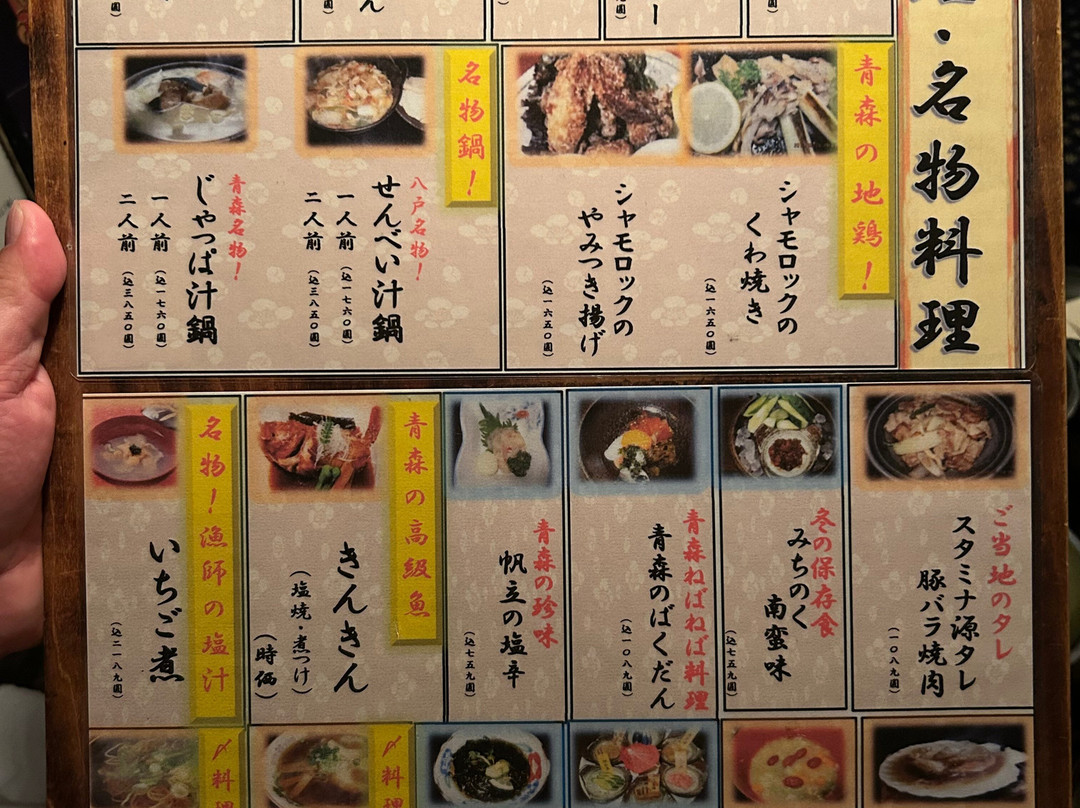 ・名物料理
青森の地鶏！
シャモロックの
くわ焼き
（込一六五〇圓）
シャモロックの
やみつき揚げ
（込一六五〇圓）
名物鍋！
八戸名物！
せんべい汁鍋
一人前（込一七六〇圓）
二人前（込三八五〇圓）
青森名物！
じゃっぱ汁鍋
一人前（込一七六〇圓）
二人前（込三八五〇圓）
ご当地のタレ
スタミナ源タレ
豚バラ焼肉
（一〇八九圓）
冬の保存食
みちのく
南蛮味
（込七五九圓）
青森ねばねば料理
青森のばくだん
（込一〇八九圓）
青森の珍味
帆立の塩辛
（込七五九圓）
青森の高級魚
きんきん
（塩焼・煮つけ）
（時価）
名物！漁師の塩汁
いちご煮
（込二一八九圓）
〆料理
〆料理